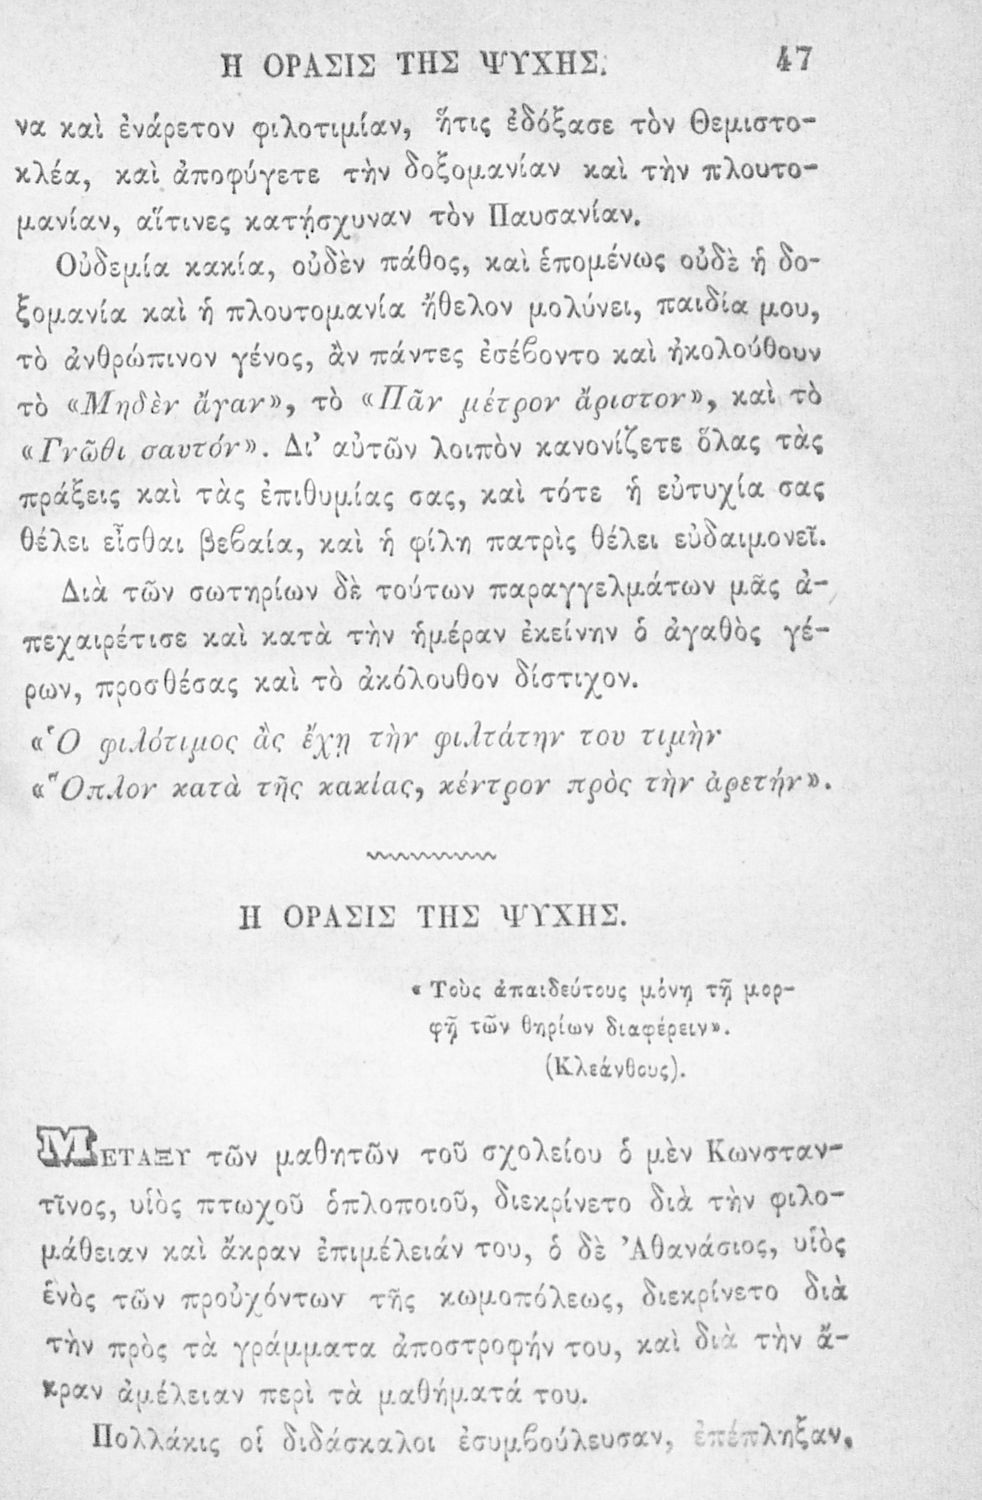 Η ΟΡΑΣΙΣ ΤΗΣ ΨΥΧΗΣ. 47
να καὶ ἐνάρετον φιλοτιμίαν, ἥτις ἐδόξασε τὸν Θεμιστο-
κλέα, καὶ ἀποφύγετε τὴν δοξομανίαν καὶ τὴν πλουτο-
μανίαν, αἵτινες κατῄσχυναν τὸν Παυσανίαν.
Οὐδεμία κακία, οὐδὲν πάθος, καὶ ἑπομένως οὐδὲ ἡ δο-
ξομανία καὶ ἡ πλουτομανία ἤθελον μολύνει, παιδία μου,
τὸ ἀνθρώπινον γένος, ἂν πάντες ἐσέϐοντο καὶ ἠκολούθουν
τὸ «Μηδὲν ἄγαν», τὸ «Πᾶν μέτρον ἄριστον», καὶ τὸ
«Γνῶθι σαυτόν». Δι’ αὐτῶν λοιπὸν κανονίζετε ὅλας τὰς
πράξεις καὶ τὰς ἐπιθυμίας σας, καὶ τότε ἡ εὐτυχία σας
θέλει εἶσθαι βεϐαία, καὶ ἡ φίλη πατρὶς θέλει εὐδαιμονεῖ.
Διὰ τῶν σωτηρίων δὲ τούτων παραγγελμάτων μᾶς ἀ-
πεχαιρέτισε καὶ κατὰ τὴν ἡμέραν ἐκείνην ὁ ἀγαθὸς γέ-
ρων, προσθέσας καὶ τὸ ἀκόλουθον δίστιχον.
«Ὁ φιλότιμος ἂς ἔχῃ τὴν φιλτάτην του τιμὴν
«Ὅπλον κατὰ τῆς κακίας, κέντρον πρὸς τὴν ἀρετήν».
Η ΟΡΑΣΙΣ ΤΗΣ ΨΥΧΗΣ.
«Τοὺς ἀπαιδεύτους μόνῃ τῇ μορ-
φῇ τῶν θηρίων διαφέρειν».
(Κλεάνθους).
ΜΕΤΑΞΥ τῶν μαθητῶν τοῦ σχολείου ὁ μὲν Κωνσταν-
τῖνος, υἱὸς πτωχοῦ ὁπλοποιοῦ, διεκρίνετο διὰ τὴν φιλο-
μάθειαν καὶ ἄκραν ἐπιμέλειάν του, ὁ δὲ Ἀθανάσιος, υἱὸς
ἑνὸς τῶν προὐχόντων τῆς κωμοπόλεως, διεκρίνετο διὰ
τὴν πρὸς τὰ γράμματα ἀποστροφήν του, καὶ διὰ τὴν ἄ-
κραν ἀμέλειαν περὶ τὰ μαθήματά του.
Πολλάκις οἱ διδάσκαλοι ἐσυμϐούλευσαν, ἐπέπληξαν,